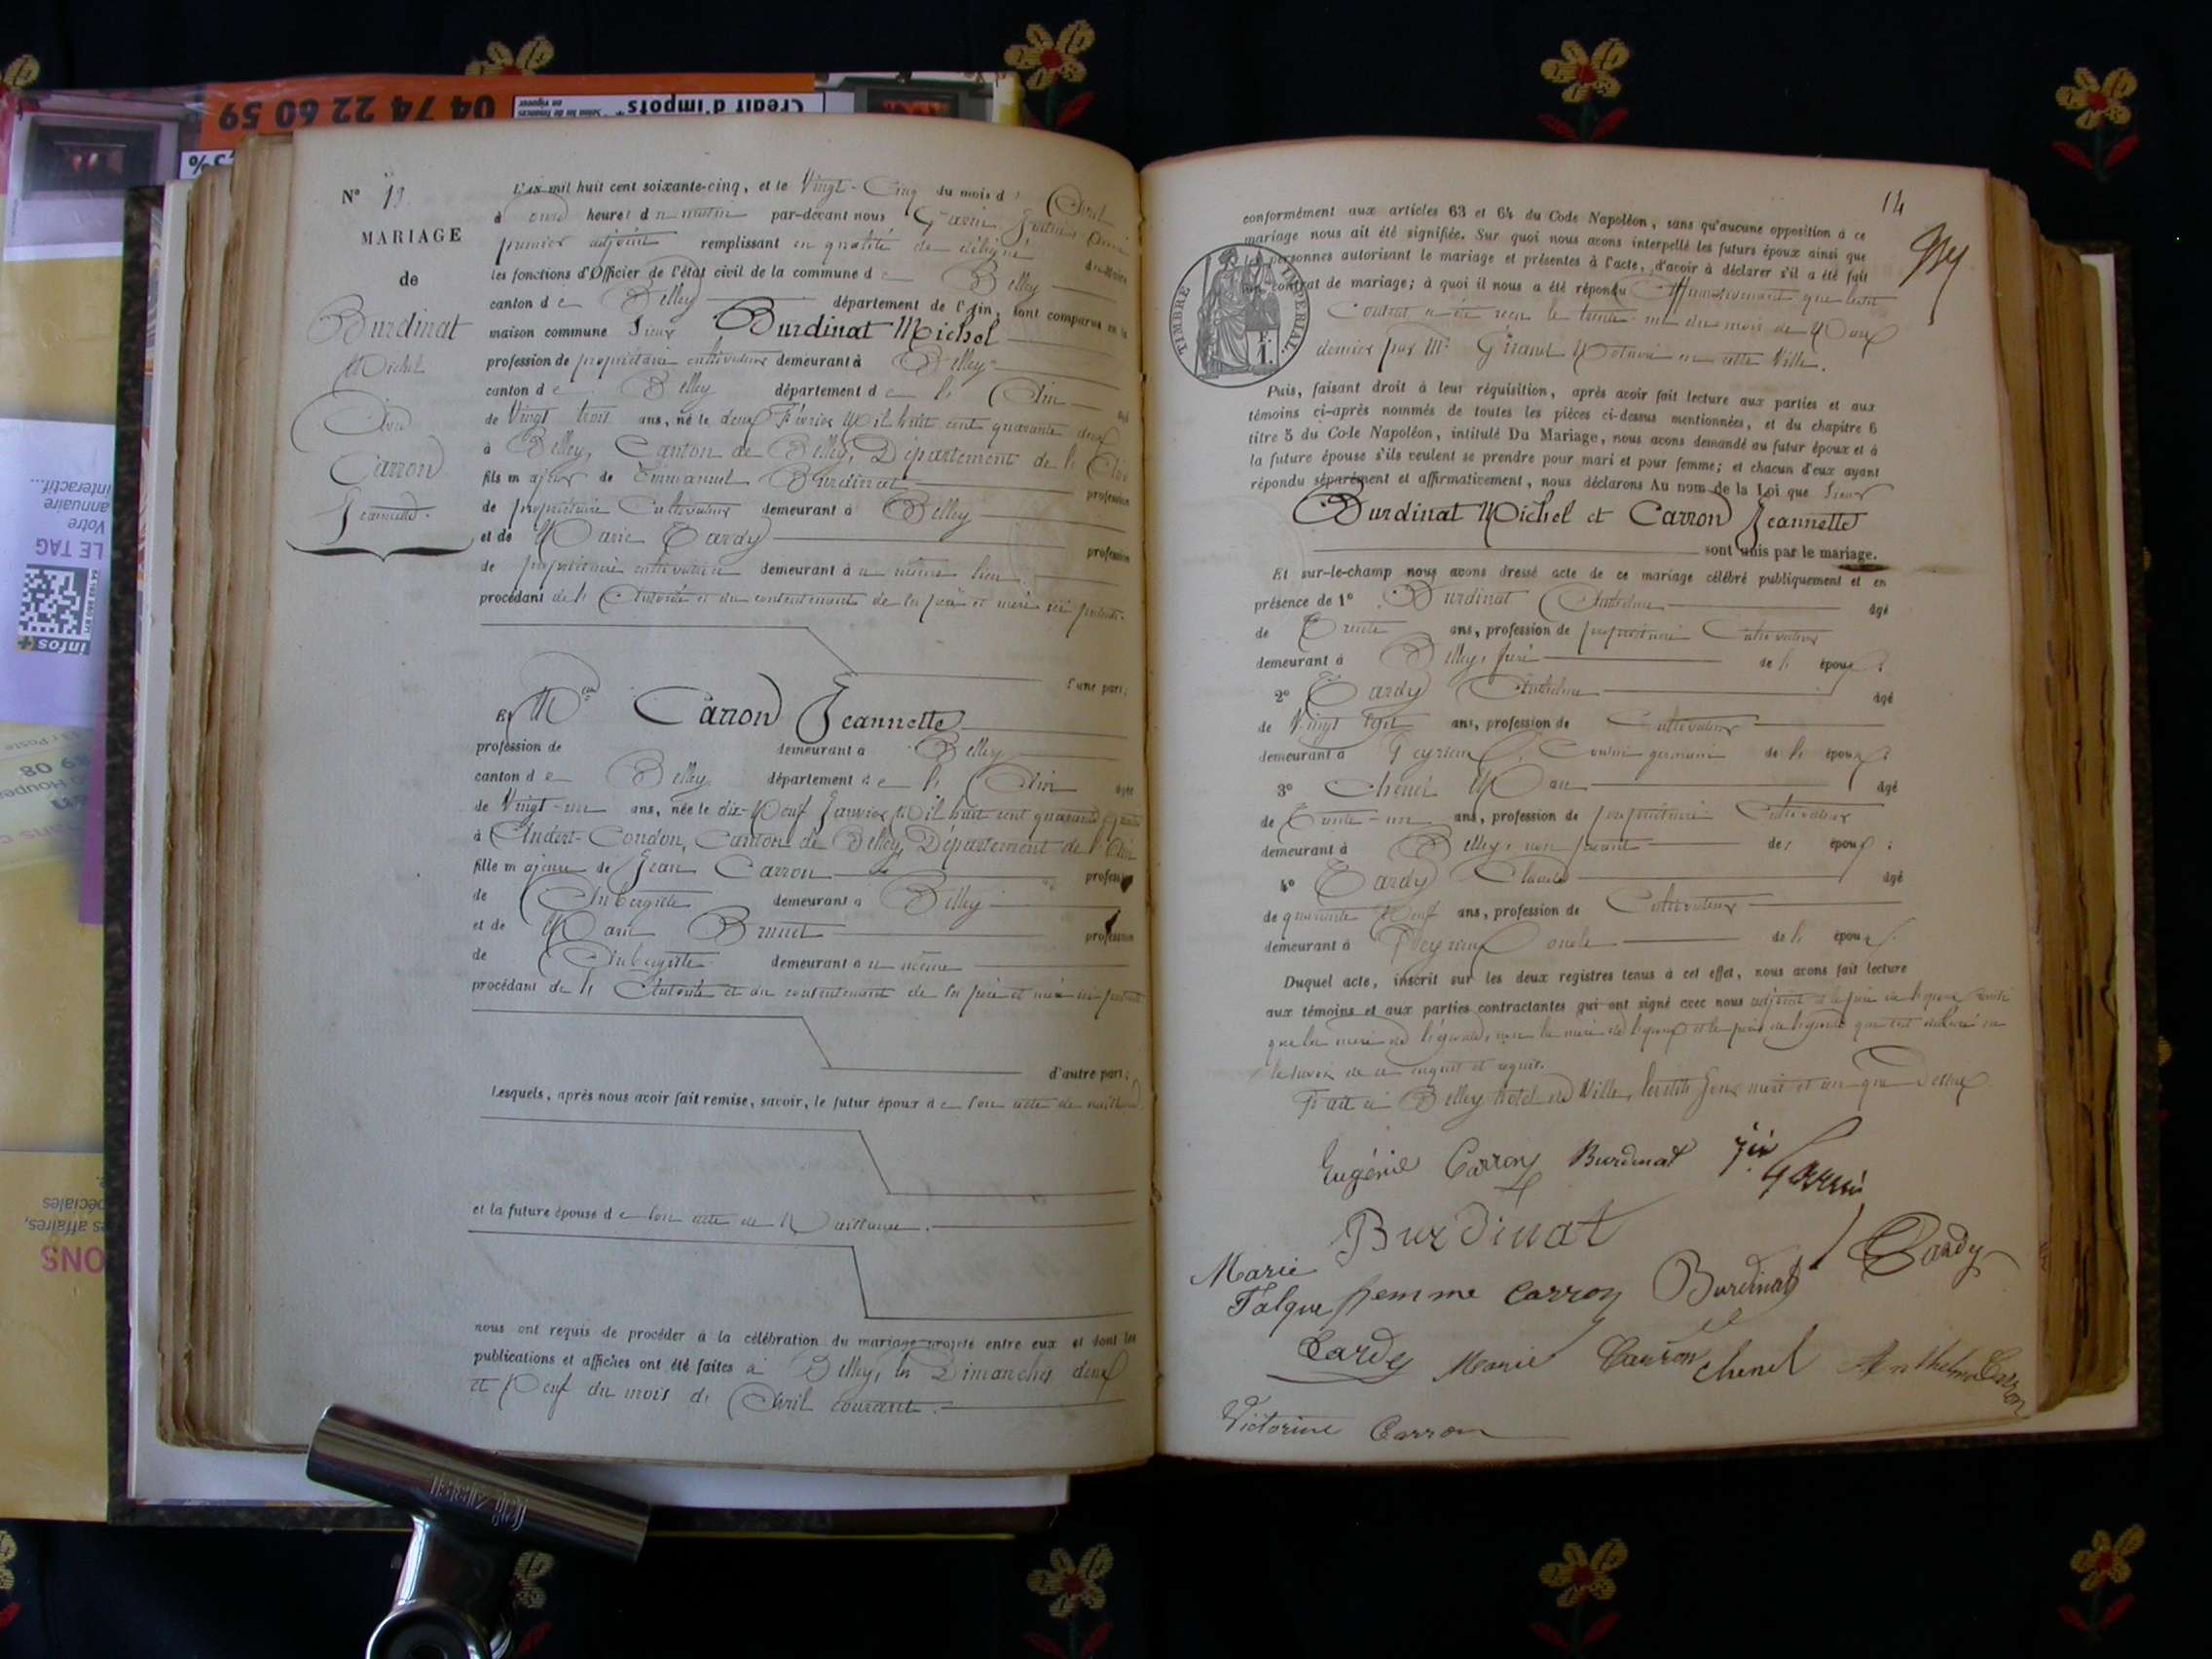 04 74 22 60 59
Crédit d'impots*
*Selon loi de finances
en vigueur
infos+
LE TAG
Votre
annuaire
interactif...
N° 19.
MARIAGE
de
Burdinat
Michel
Carron
Jeannette.
L'an mil huit cent soixante-cinq, et le Vingt-Cinq du mois d' Avril
à onze heures du matin par-devant nous
premier adjoint remplissant en qualité de délégué du Maire
les fonctions d'Officier de l'état civil de la commune de Belley
canton de Belley département de l'Ain, sont comparus en la
maison commune Sieur Burdinat Michel
profession de propriétaire cultivateur demeurant à Belley
canton de Belley département de l' Ain âgé
de Vingt trois ans, né le deux Février Mil huit cent quarante deux
à Belley, Canton de Belley, Département de l'Ain
fils majeur de Emmanuel Burdinat profession
de propriétaire Cultivateur demeurant à Belley
et de Marie Tardy profession
de propriétaire cultivatrice demeurant à u même lieu
procédant de l'Autorité et du consentement de ses père et mère ici présents.
d'une part;
Et Carron Jeannette
profession de demeurant à Belley
canton de Belley département de l' Ain âgée
de Vingt-un ans, née le dix-Neuf Janvier Mil huit cent quarante quatre
à Andert-Condon, Canton de Belley, Département de l'Ain
fille majeure de Jean Carron profession
de Aubergiste demeurant à Belley
et de Marie Brunet profession
de Aubergiste demeurant a u même
procédant de l'Autorité et du consentement de ses père et mère ici présents
d'autre part;
Lesquels, après nous avoir fait remise, savoir, le futur époux de son acte de naissance
et la future épouse de son acte de Naissance.
nous ont requis de procéder à la célébration du mariage projeté entre eux et dont les
publications et affiches ont été faites à Belley, les Dimanches deux
et Neuf du mois d' Avril courant.
14
conformément aux articles 63 et 64 du Code Napoléon, sans qu'aucune opposition à ce
mariage nous ait été signifiée. Sur quoi nous avons interpellé les futurs époux ainsi que
les personnes autorisant le mariage et présentes à l'acte, d'avoir à déclarer s'il a été fait
un contrat de mariage; à quoi il nous a été répondu Affirmativement que ledit
Contrat a été reçu le trente-un du mois de Mars
dernier par Me Girand Notaire en cette Ville.
TIMBRE IMPERIAL.
1 F.
Puis, faisant droit à leur réquisition, après avoir fait lecture aux parties et aux
témoins ci-après nommés de toutes les pièces ci-dessus mentionnées, et du chapitre 6
titre 5 du Code Napoléon, intitulé Du Mariage, nous avons demandé au futur époux et à
la future épouse s'ils veulent se prendre pour mari et pour femme; et chacun d'eux ayant
répondu séparément et affirmativement, nous déclarons Au nom de la Loi que Sieur
Burdinat Michel et Carron Jeannette
sont unis par le mariage.
Et sur-le-champ nous avons dressé acte de ce mariage célébré publiquement et en
présence de 1° Burdinat Anthelme âgé
de Trente ans, profession de propriétaire Cultivateur
demeurant à Belley, frère de l' époux;
2° Tardy Anthelme âgé
de Vingt Sept ans, profession de Cultivateur
demeurant à Peyrieux, Cousin germain de l' époux;
3° Chenel Marc âgé
de Trente-un ans, profession de propriétaire Cultivateur
demeurant à Belley, non parent des époux;
4° Tardy Claude âgé
de quarante Neuf ans, profession de Cultivateur
demeurant à Peyrieux oncle de l' époux.
Duquel acte, inscrit sur les deux registres tenus à cet effet, nous avons fait lecture
aux témoins et aux parties contractantes qui ont signé avec nous adjoint et le père de l'époux
que la mère de l'épouse, non la mère de l'époux et le père de l'épouse qui ont déclaré ne
le savoir de ce enquis et requis.
Fait à Belley hôtel de Ville, lesdits jour, mois et an que Dessus
Eugénie Carron Burdinat
Burdinat Tardy
Marie
Falque femme Carron Burdinat
Tardy Marie Carron Chenel Anthelme Carron
Victorine Carron